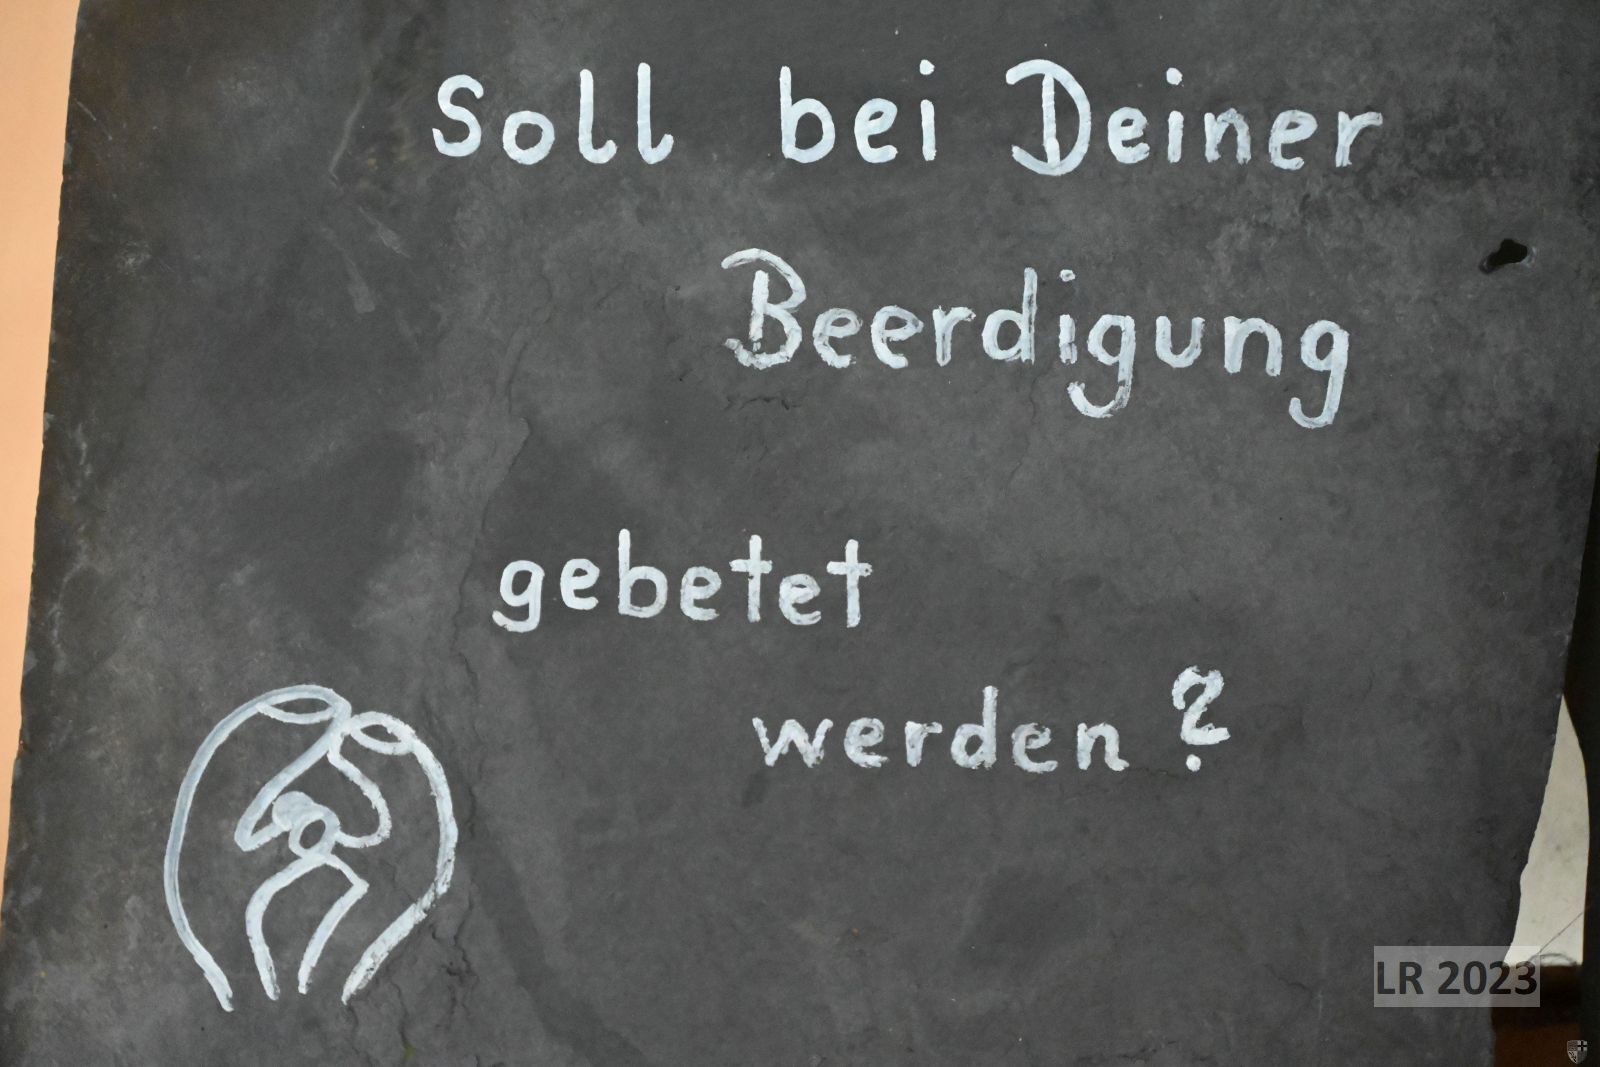 Soll bei Deiner
Beerdigung
gebetet
werden?
LR 2023